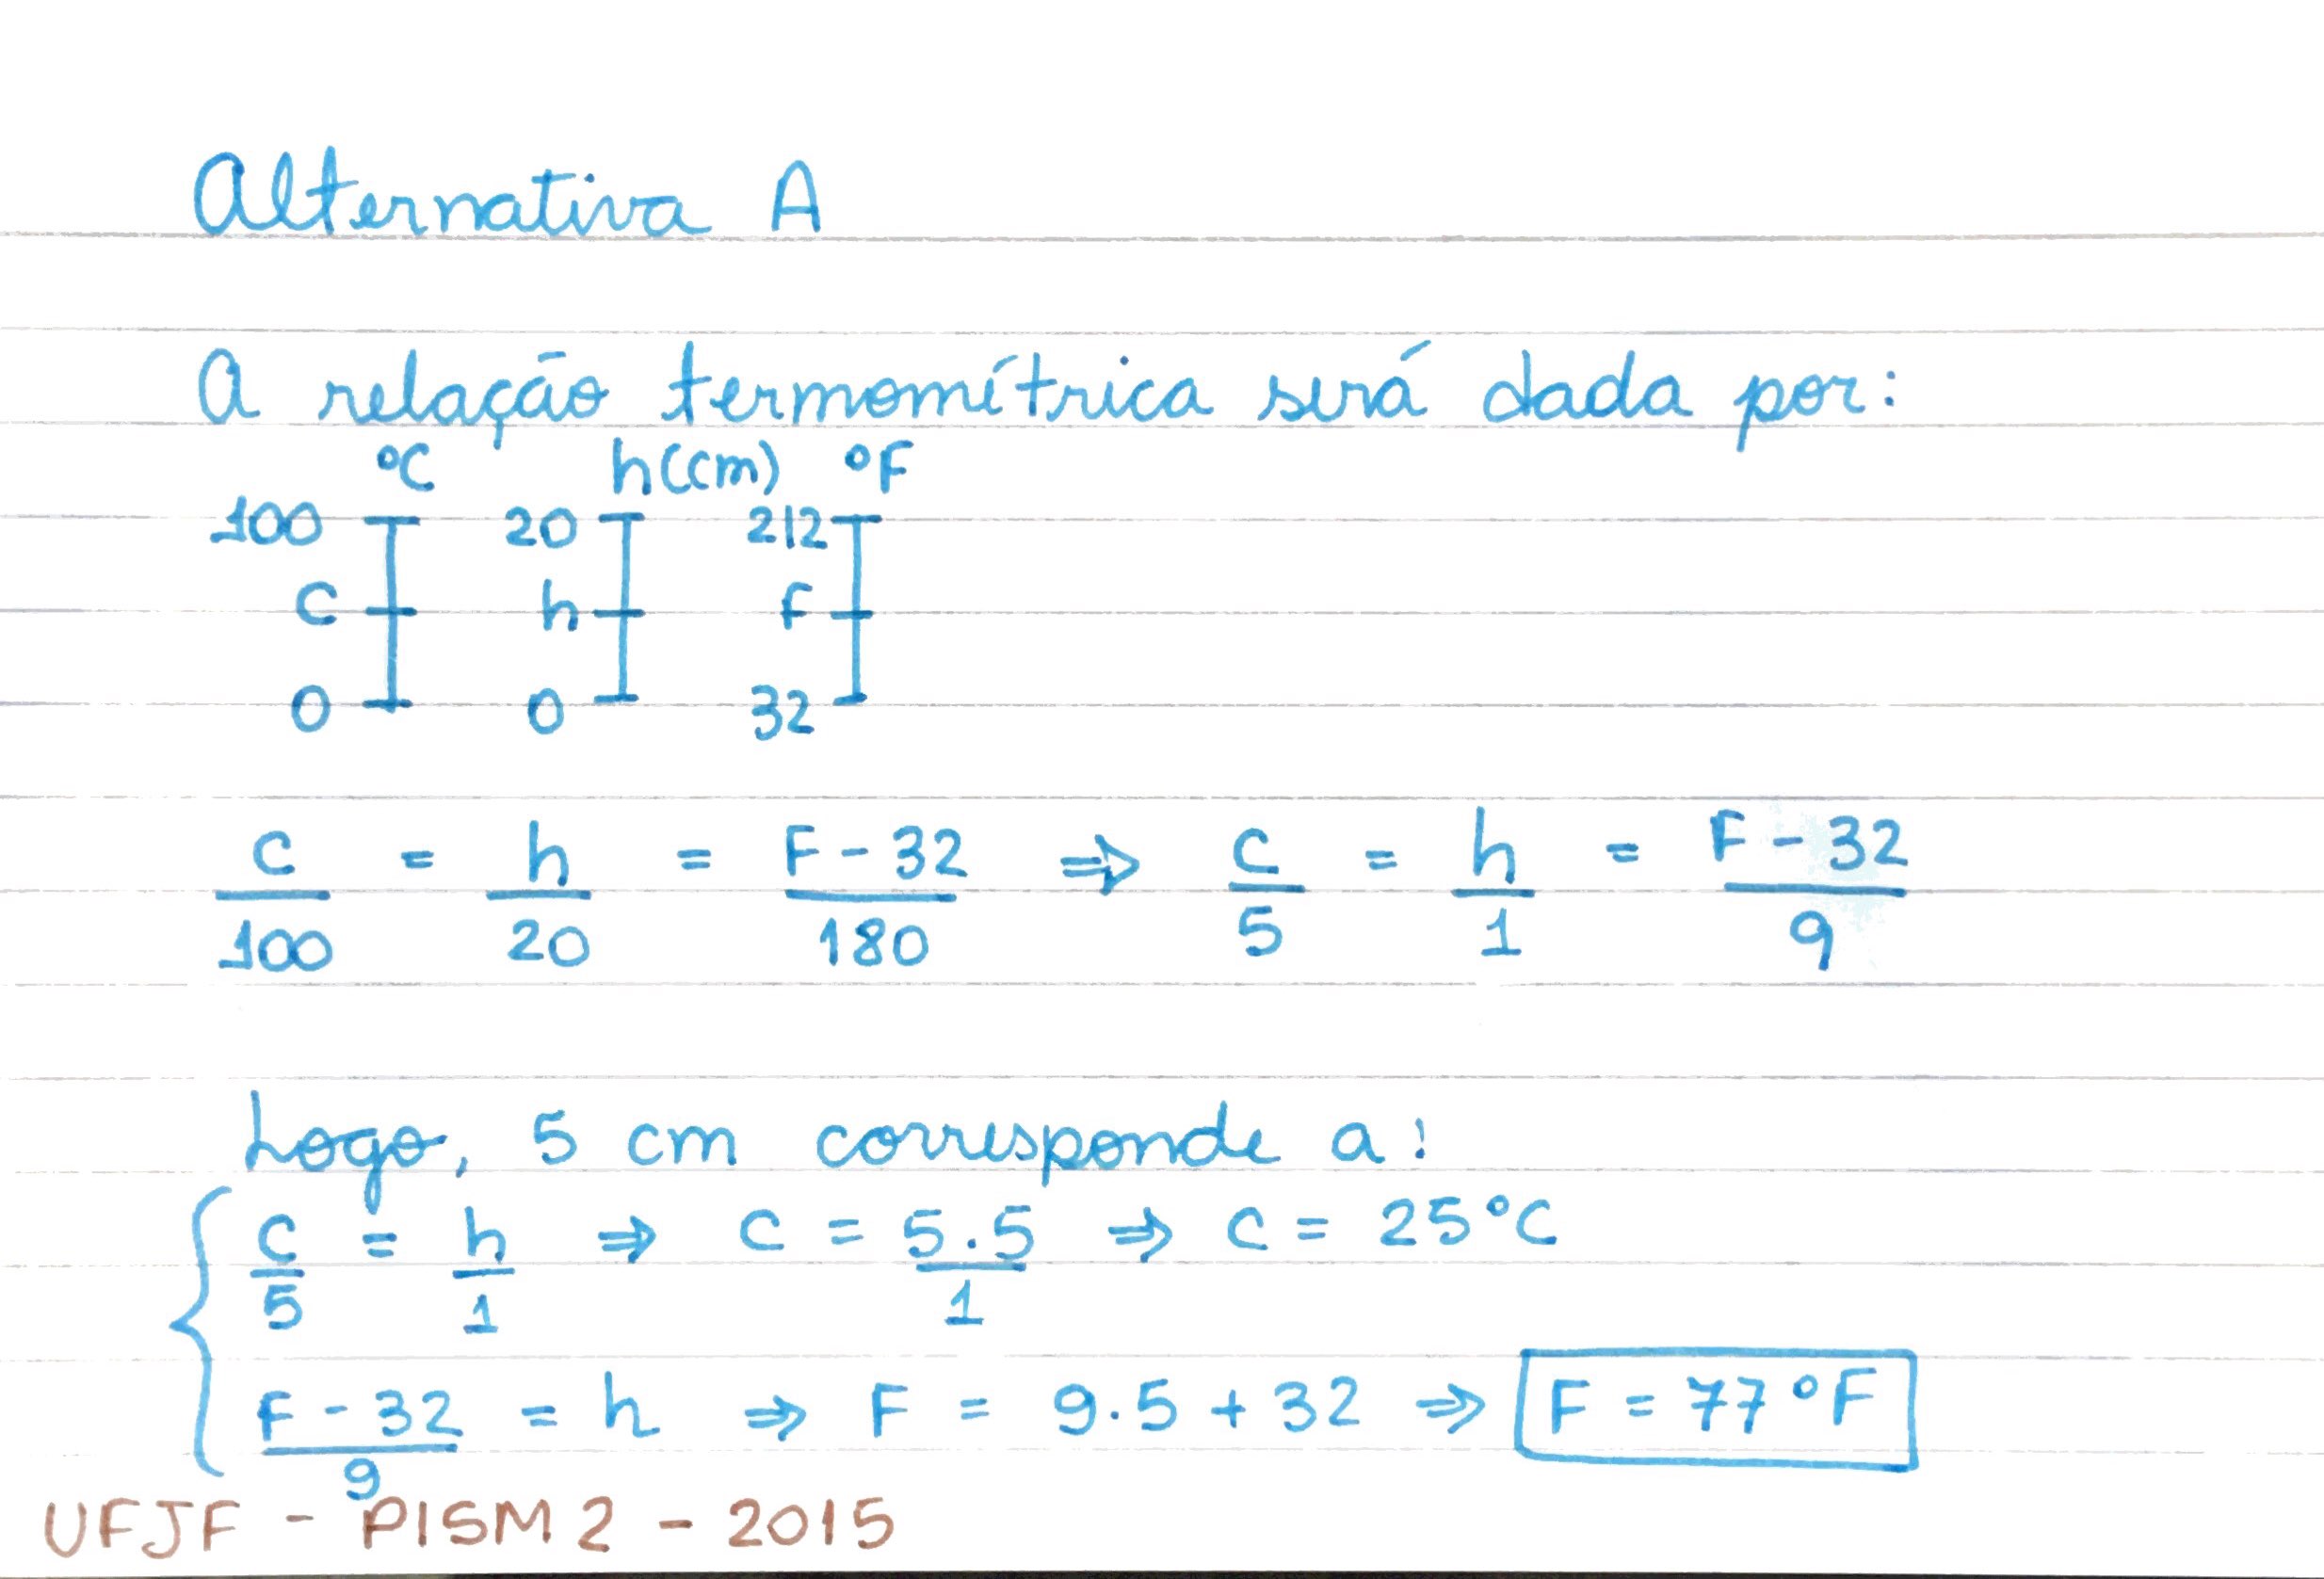 Alternativa A
A relação termomítrica será dada por:
°C h(cm) °F
100 20 212
C h F
0 0 32
C/100 = h/20 = F - 32/180 ⇒ C/5 = h/1 = F - 32/9
Logo, 5 cm corresponde a:
C/5 = h/1 ⇒ C = 5.5/1 ⇒ C = 25°C
F - 32/9 = h ⇒ F = 9.5 + 32 ⇒ F = 77°F
UFJF - PISM 2 - 2015